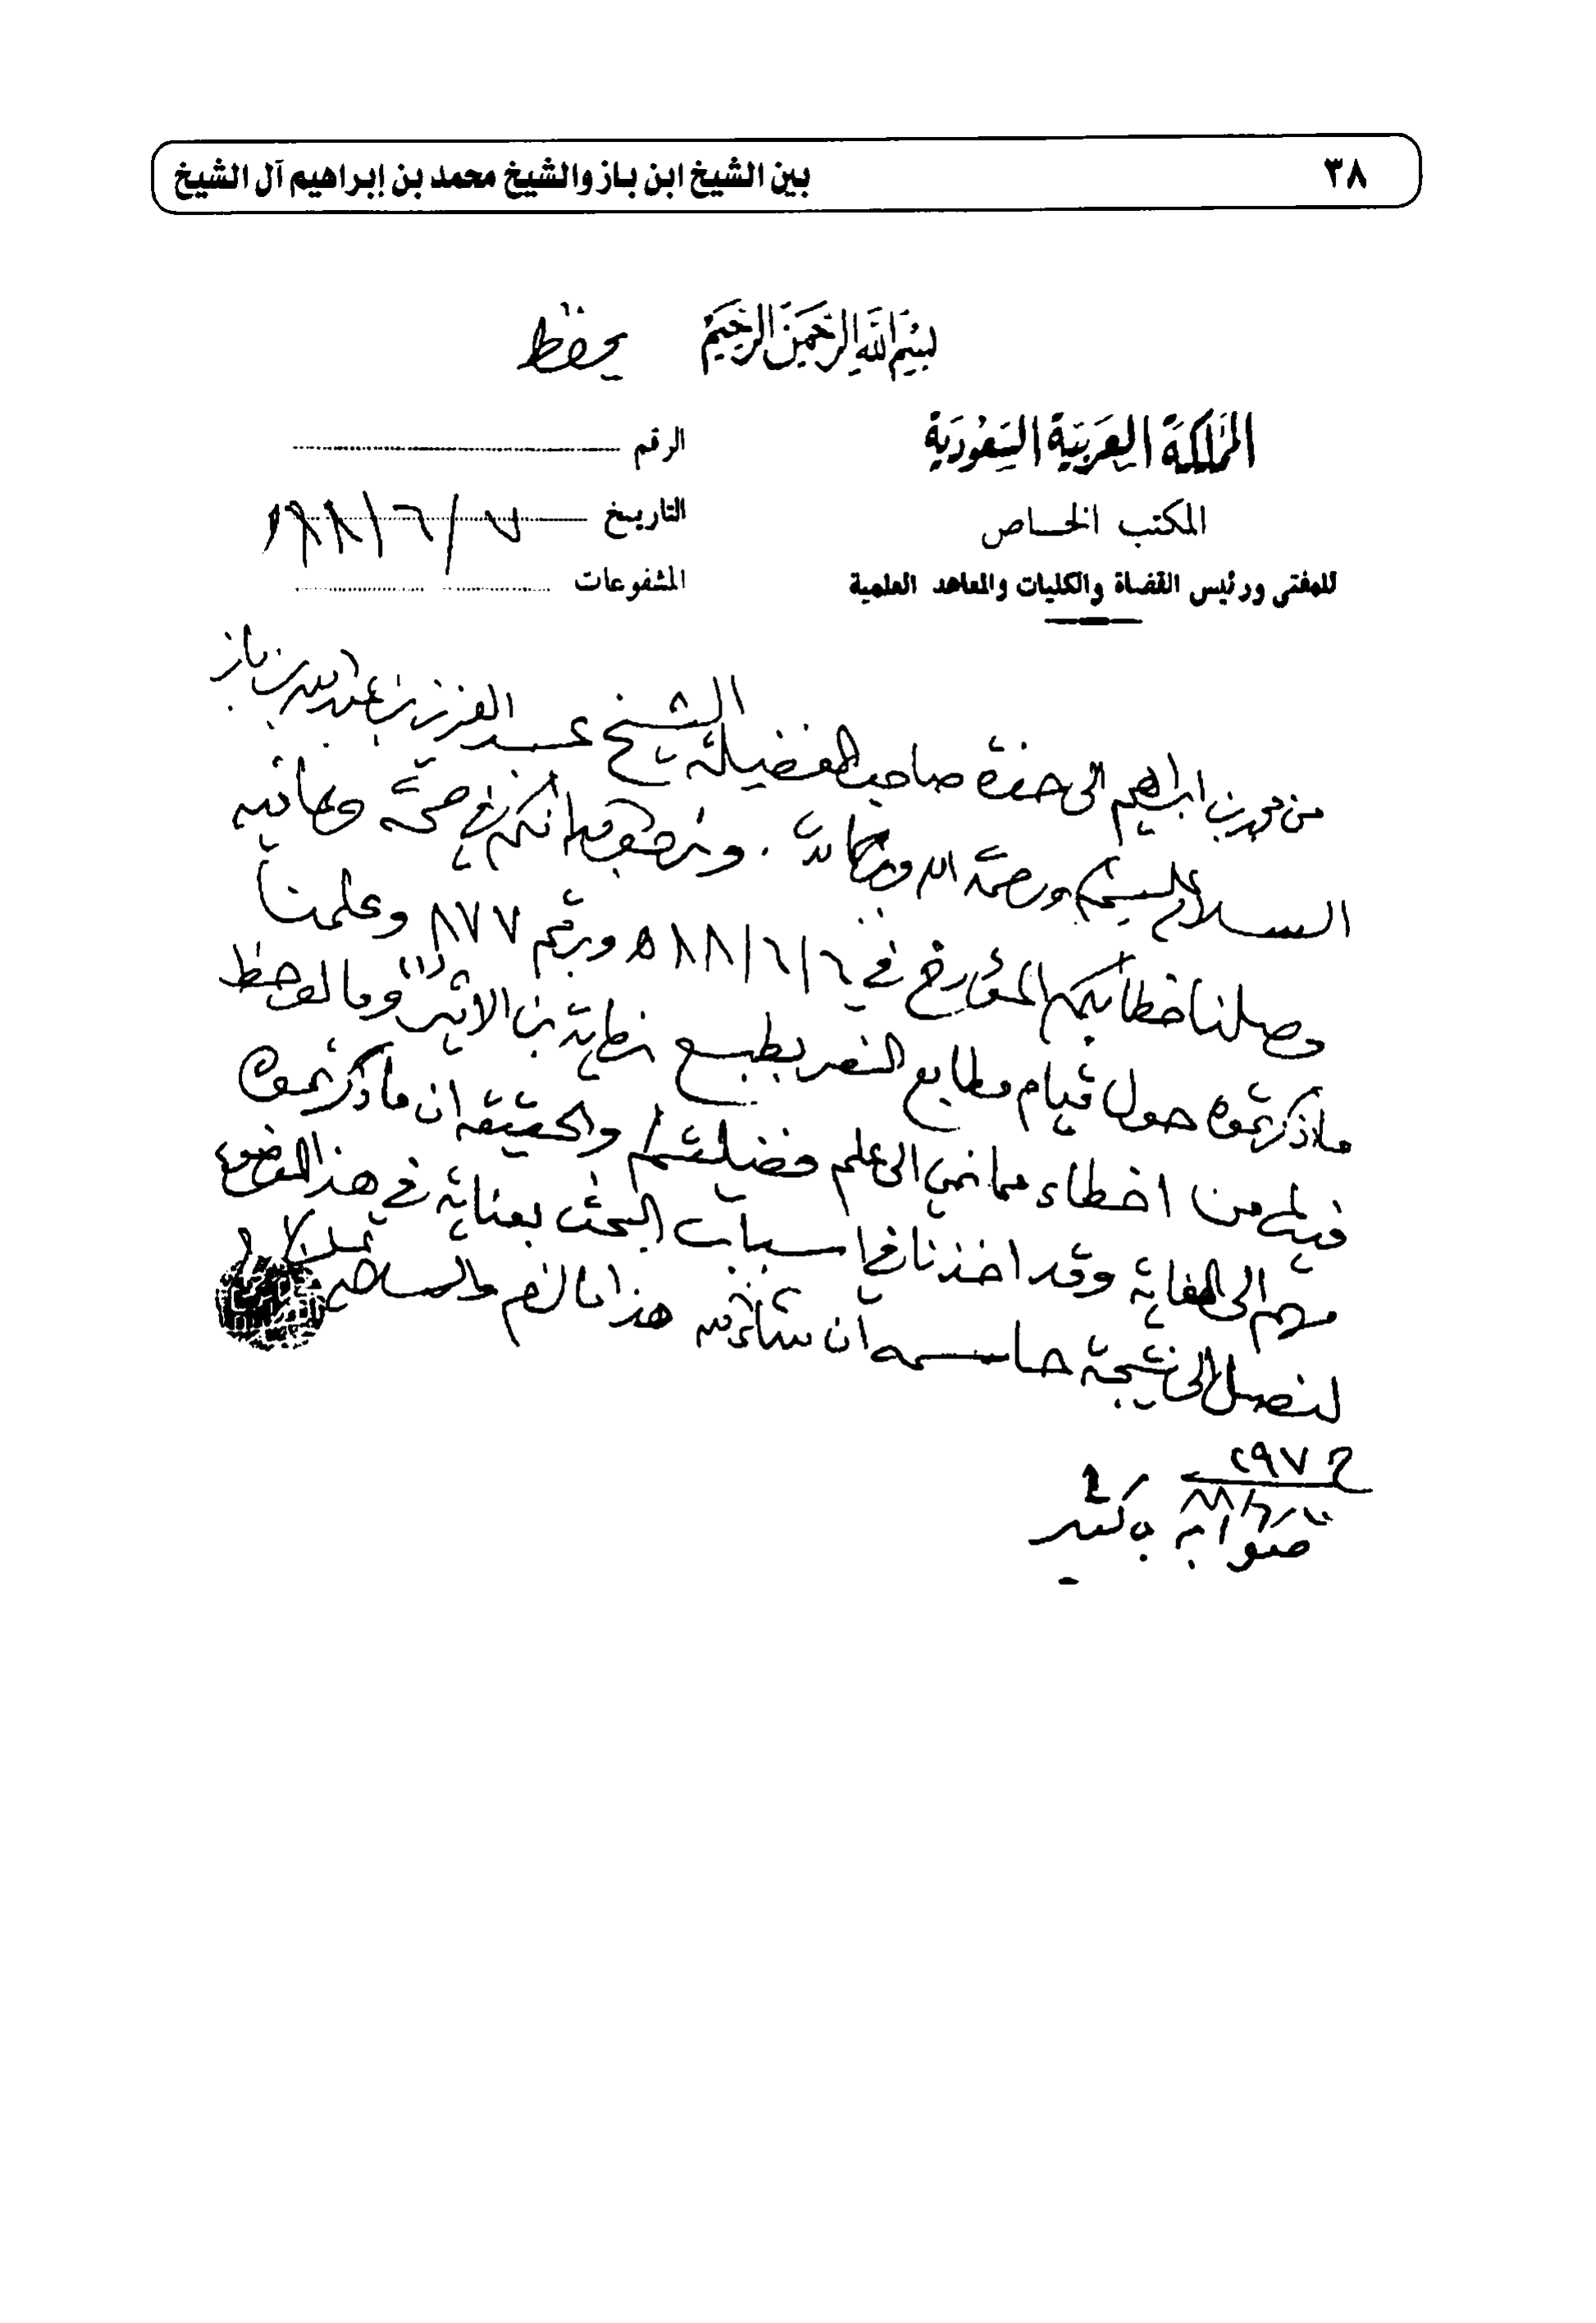 ٣٨
بين الشيخ ابن باز والشيخ محمد بن إبراهيم آل الشيخ
بسم الله الرحمن الرحيم
يحفظ
المملكة العربية السعودية
المكتب الخاص
للمفتي ورئيس القضاة والكليات والمعاهد العلمية
الرقم
التاريخ ٧/٦/٨٨
المشفوعات
من محمد بن ابراهيم الى حضرة صاحب الفضيلة الشيخ عبد العزيز بن عبد الله بن باز
السلام عليكم ورحمة الله وبركاته . ونرجو الله انكم في صحة وعافيه
وصلنا خطابكم المؤرخ في ٦/٦/٨٨ ه وبرقم ٨٧٧ وعلمنا
ماذكرتموه حول قيام مطابع النصر بطبع نهاية بن الاثير وما لوحظ
فيها من اخطاء مما نمي الى علم فضيلتكم والحقيقه ان ماذكرتموه
مهم الى الغاية وقد اخذنا في اسباب البحث بعناية في هذا الموضوع
لنصل الى نتيجة حاسمه ان شاء الله هذا ما لزم والسلام عليكم
٢٩٧
باكثير